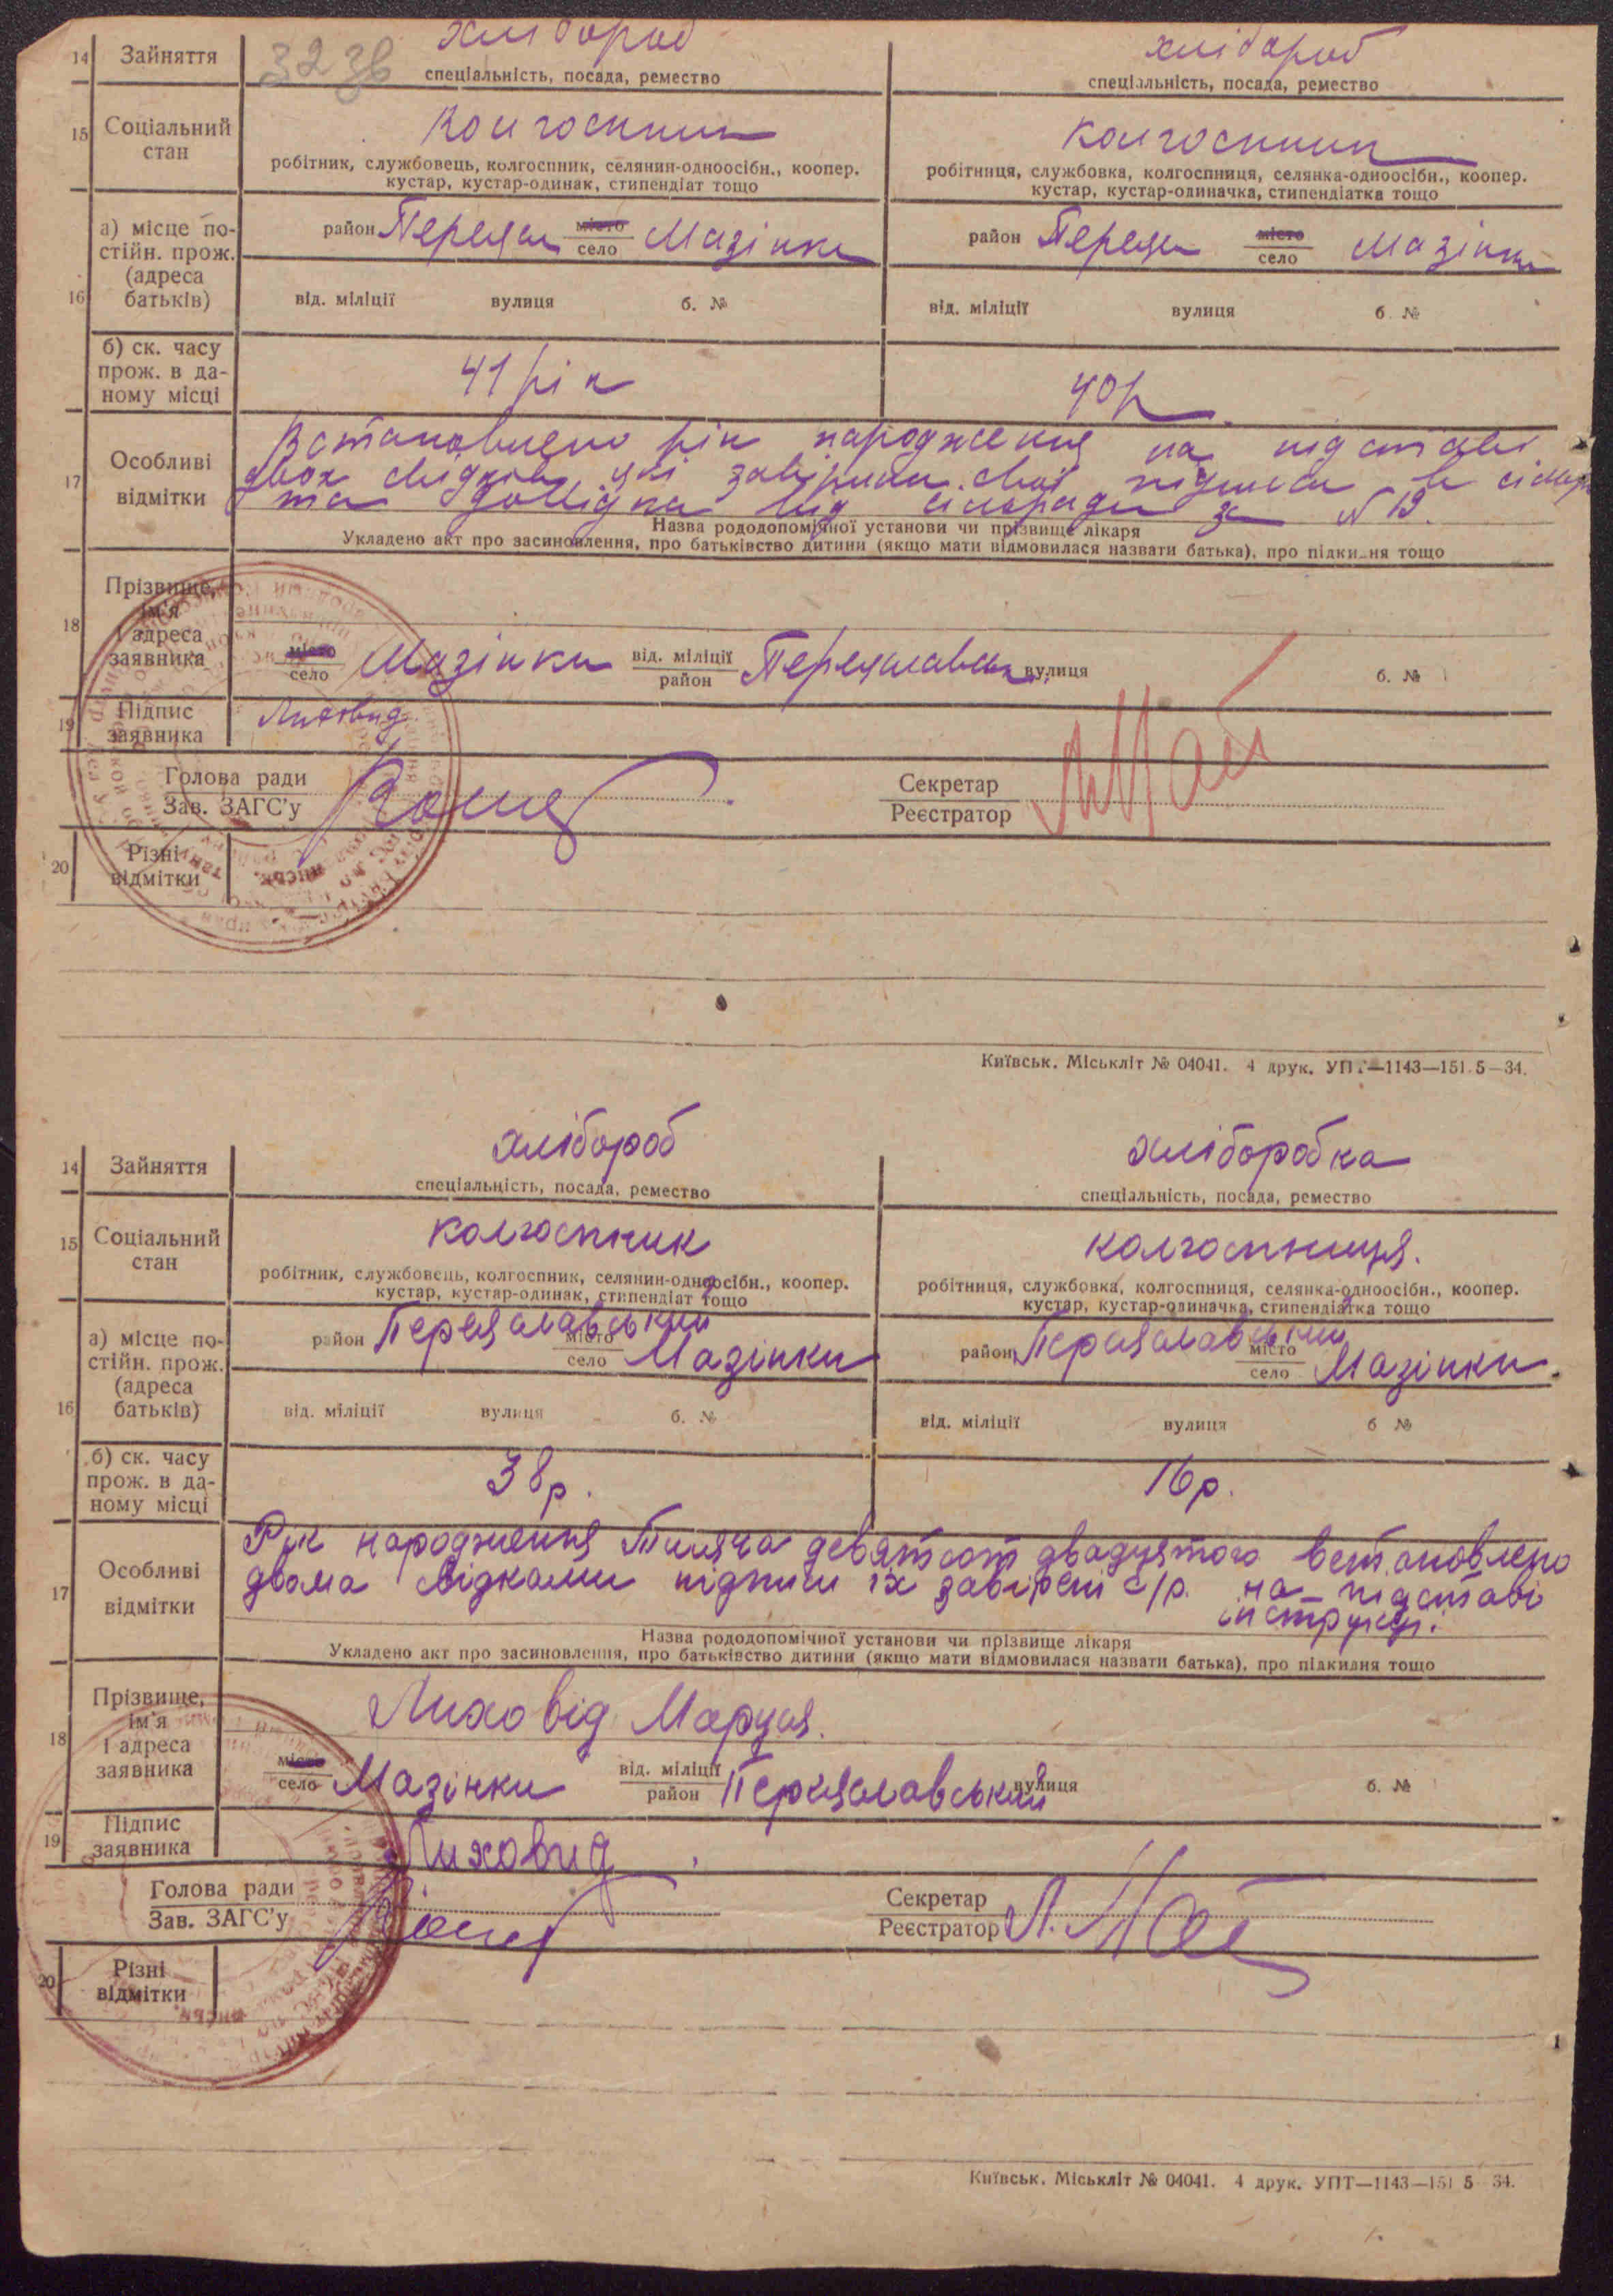 14 Зайняття 323в хлібороб хлібороб
спеціальність, посада, ремество спеціальність, посада, ремество
15 Соціальний стан Колгоспник Колгоспник
робітник, службовець, колгоспник, селянин-одноосібн., коопер. робітниця, службовка, колгоспниця, селянка-одноосібн., коопер.
кустар, кустар-одинак, стипендіат тощо кустар, кустар-одиначка, стипендіатка тощо
16 а) місце по-
стійн. прож.
(адреса
батьків)
район Переясл місто село Мазінки район Переясл місто село Мазінки
від. міліції вулиця б. № від. міліції вулиця б. №
б) ск. часу
прож. в да-
ному місці
41 рік 40р
17 Особливі
відмітки
Встановлено рік народження на підставі
двох свідків які завірили свої підписи в сільр
та довідка від сільради за № 13.
Назва рододопомічної установи чи прізвище лікаря
Укладено акт про засиновлення, про батьківство дитини (якщо мати відмовилася назвати батька), про підкидня тощо
18 Прізвище,
ім'я
і адреса
заявника
місто село Мазінки від. міліції район Переяславськ вулиця б. №
19 Підпис
заявника
Лиховид
Голова ради
Зав. ЗАГС'у
Секретар
Реєстратор
20 Різні
відмітки
Київськ. Міськліт № 04041. 4 друк. УПТ—1143—151 5—34.
14 Зайняття хлібороб хліборобка
спеціальність, посада, ремество спеціальність, посада, ремество
15 Соціальний стан колгоспник колгоспниця.
робітник, службовець, колгоспник, селянин-одноосібн., коопер. робітниця, службовка, колгоспниця, селянка-одноосібн., коопер.
кустар, кустар-одинак, стипендіат тощо кустар, кустар-одиначка, стипендіатка тощо
16 а) місце по-
стійн. прож.
(адреса
батьків)
район Переяславський місто село Мазінки район Переяславський місто село Мазінки.
від. міліції вулиця б. № від. міліції вулиця б №
б) ск. часу
прож. в да-
ному місці
38р. 16р.
17 Особливі
відмітки
Рік народження Тисяча девятсот двадцятого встановлено
двома свідками підписи їх завірені с/р. на підставі
інструкції.
Назва рододопомічної установи чи прізвище лікаря
Укладено акт про засиновлення, про батьківство дитини (якщо мати відмовилася назвати батька), про підкидня тощо
18 Прізвище,
ім'я
і адреса
заявника
Лиховід Маруся.
місто село Мазінки від. міліції район Переяславський вулиця б. №
19 Підпис
заявника
Лиховид
Голова ради
Зав. ЗАГС'у
Секретар
Реєстратор
20 Різні
відмітки
Київськ. Міськліт № 04041. 4 друк. УПТ—1143—151 5 34.